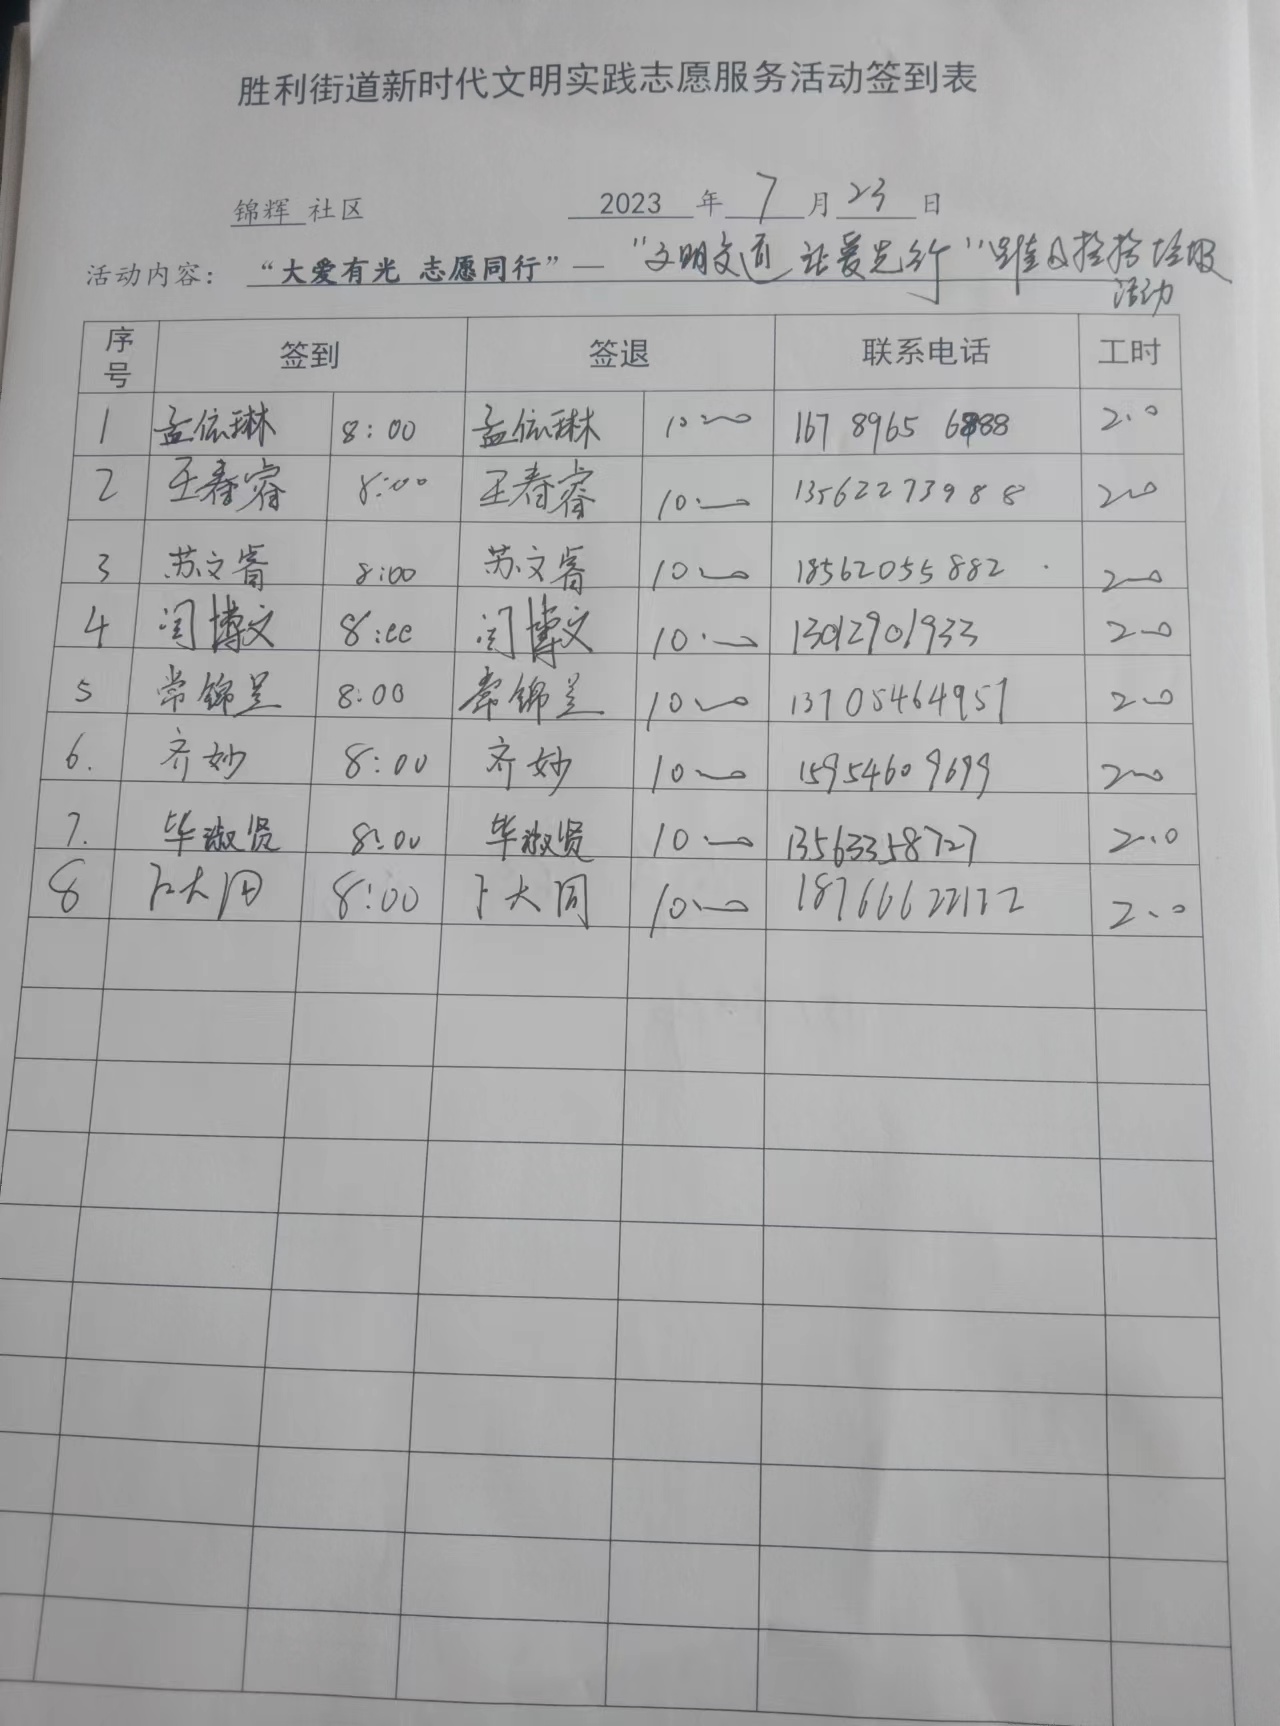 胜利街道新时代文明实践志愿服务活动签到表
锦辉 社区 2023 年 7 月 23 日
活动内容：“大爱有光 志愿同行”— “文明交通 让爱先行” 捡拾垃圾
活动
序号 签到 签退 联系电话 工时
1 孟依琳 8:00 孟依琳 10:00 167 8965 6888 2.0
2 王春睿 8:00 王春睿 10:00 13562273988 2.0
3 苏文睿 8:00 苏文睿 10:00 18562055882 2.0
4 闫博文 8:00 闫博文 10:00 13012901933 2.0
5 常锦昱 8:00 常锦昱 10:00 13705464957 2.0
6. 齐妙 8:00 齐妙 10:00 15954609699 2.0
7. 毕淑贤 8:00 毕淑贤 10:00 13563358727 2.0
8 卜大同 8:00 卜大同 10:00 18766622122 2.0